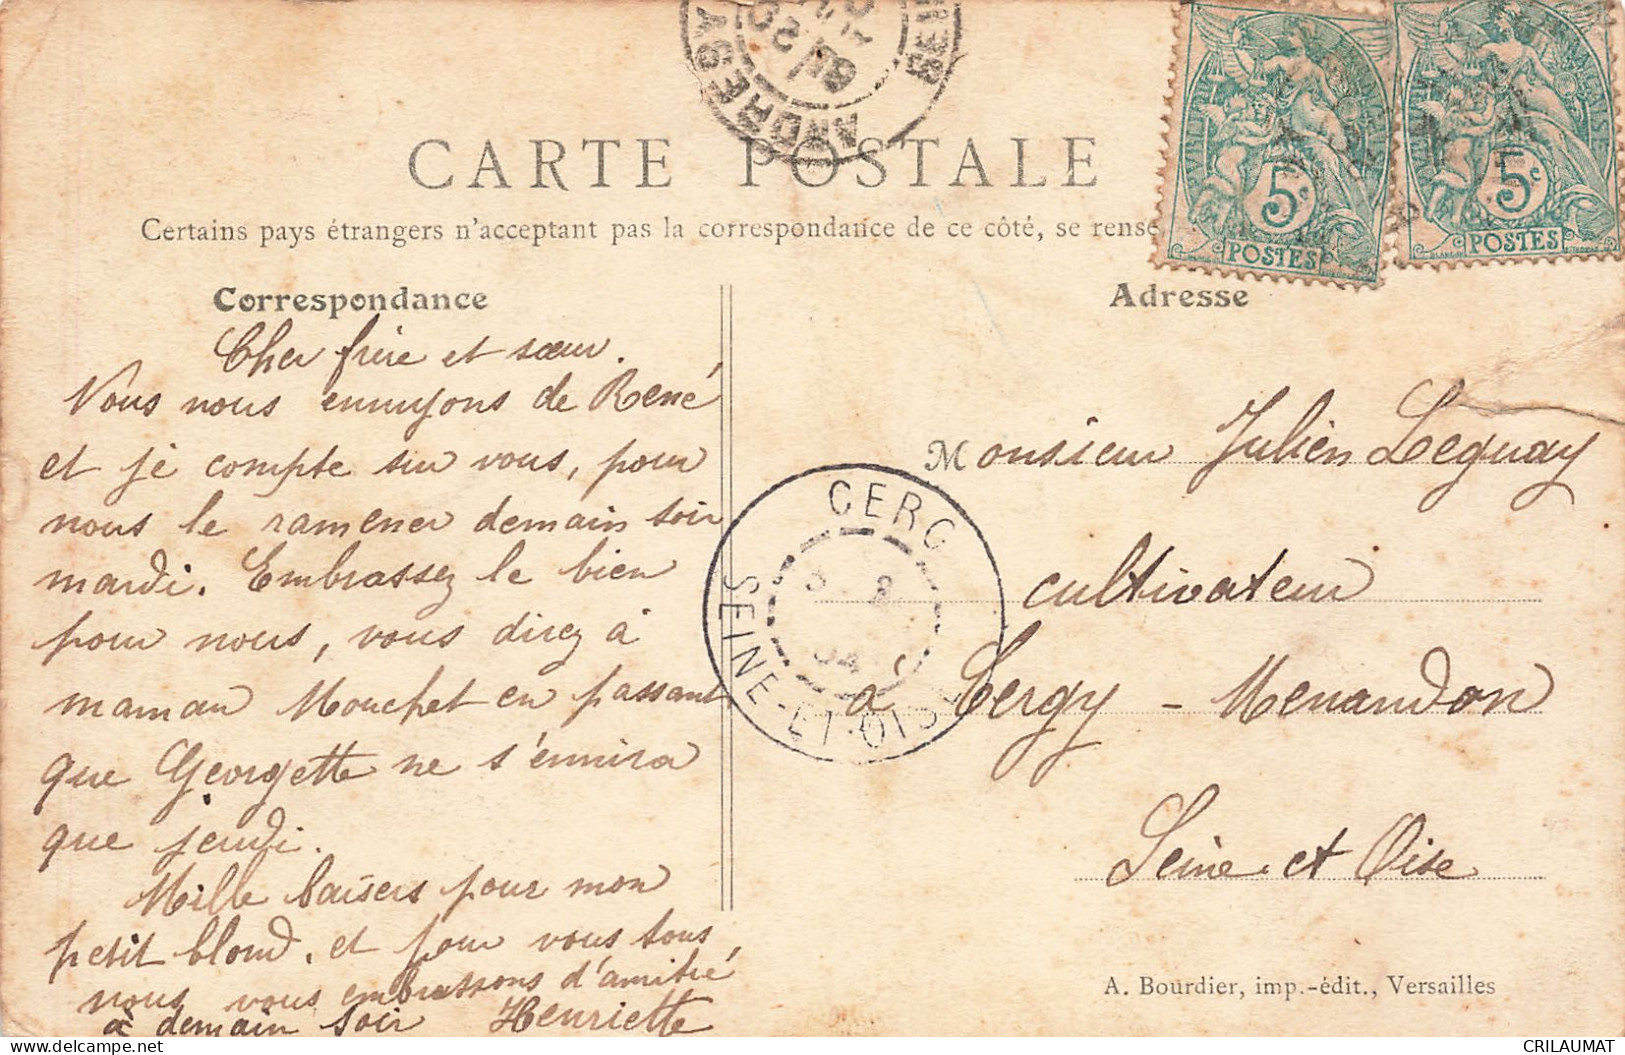 CARTE POSTALE
Certains pays étrangers n'acceptant pas la correspondance de ce côté, se rense
Correspondance
Cher frère et sœur.
Nous nous ennuyons de René
et je compte sur vous, pour
nous le ramener demain soir
mardi. Embrassez le bien
pour nous, vous direz à
maman Mouchet en passant
que Georgette ne s'ennira
que jeudi.
Mille baisers pour mon
petit blond. et pour vous tous
nous vous embrassons d'amitié
à demain soir Henriette
Adresse
Monsieur Julien Leguay
cultivateur
à Cergy - Menandon
Seine et Oise
A. Bourdier, imp.-édit., Versailles
ANDRESY
SEINE
CERG
SEINE-ET-OISE
5c
POSTES
5c
POSTES
www.delcampe.net
CRILAUMAT